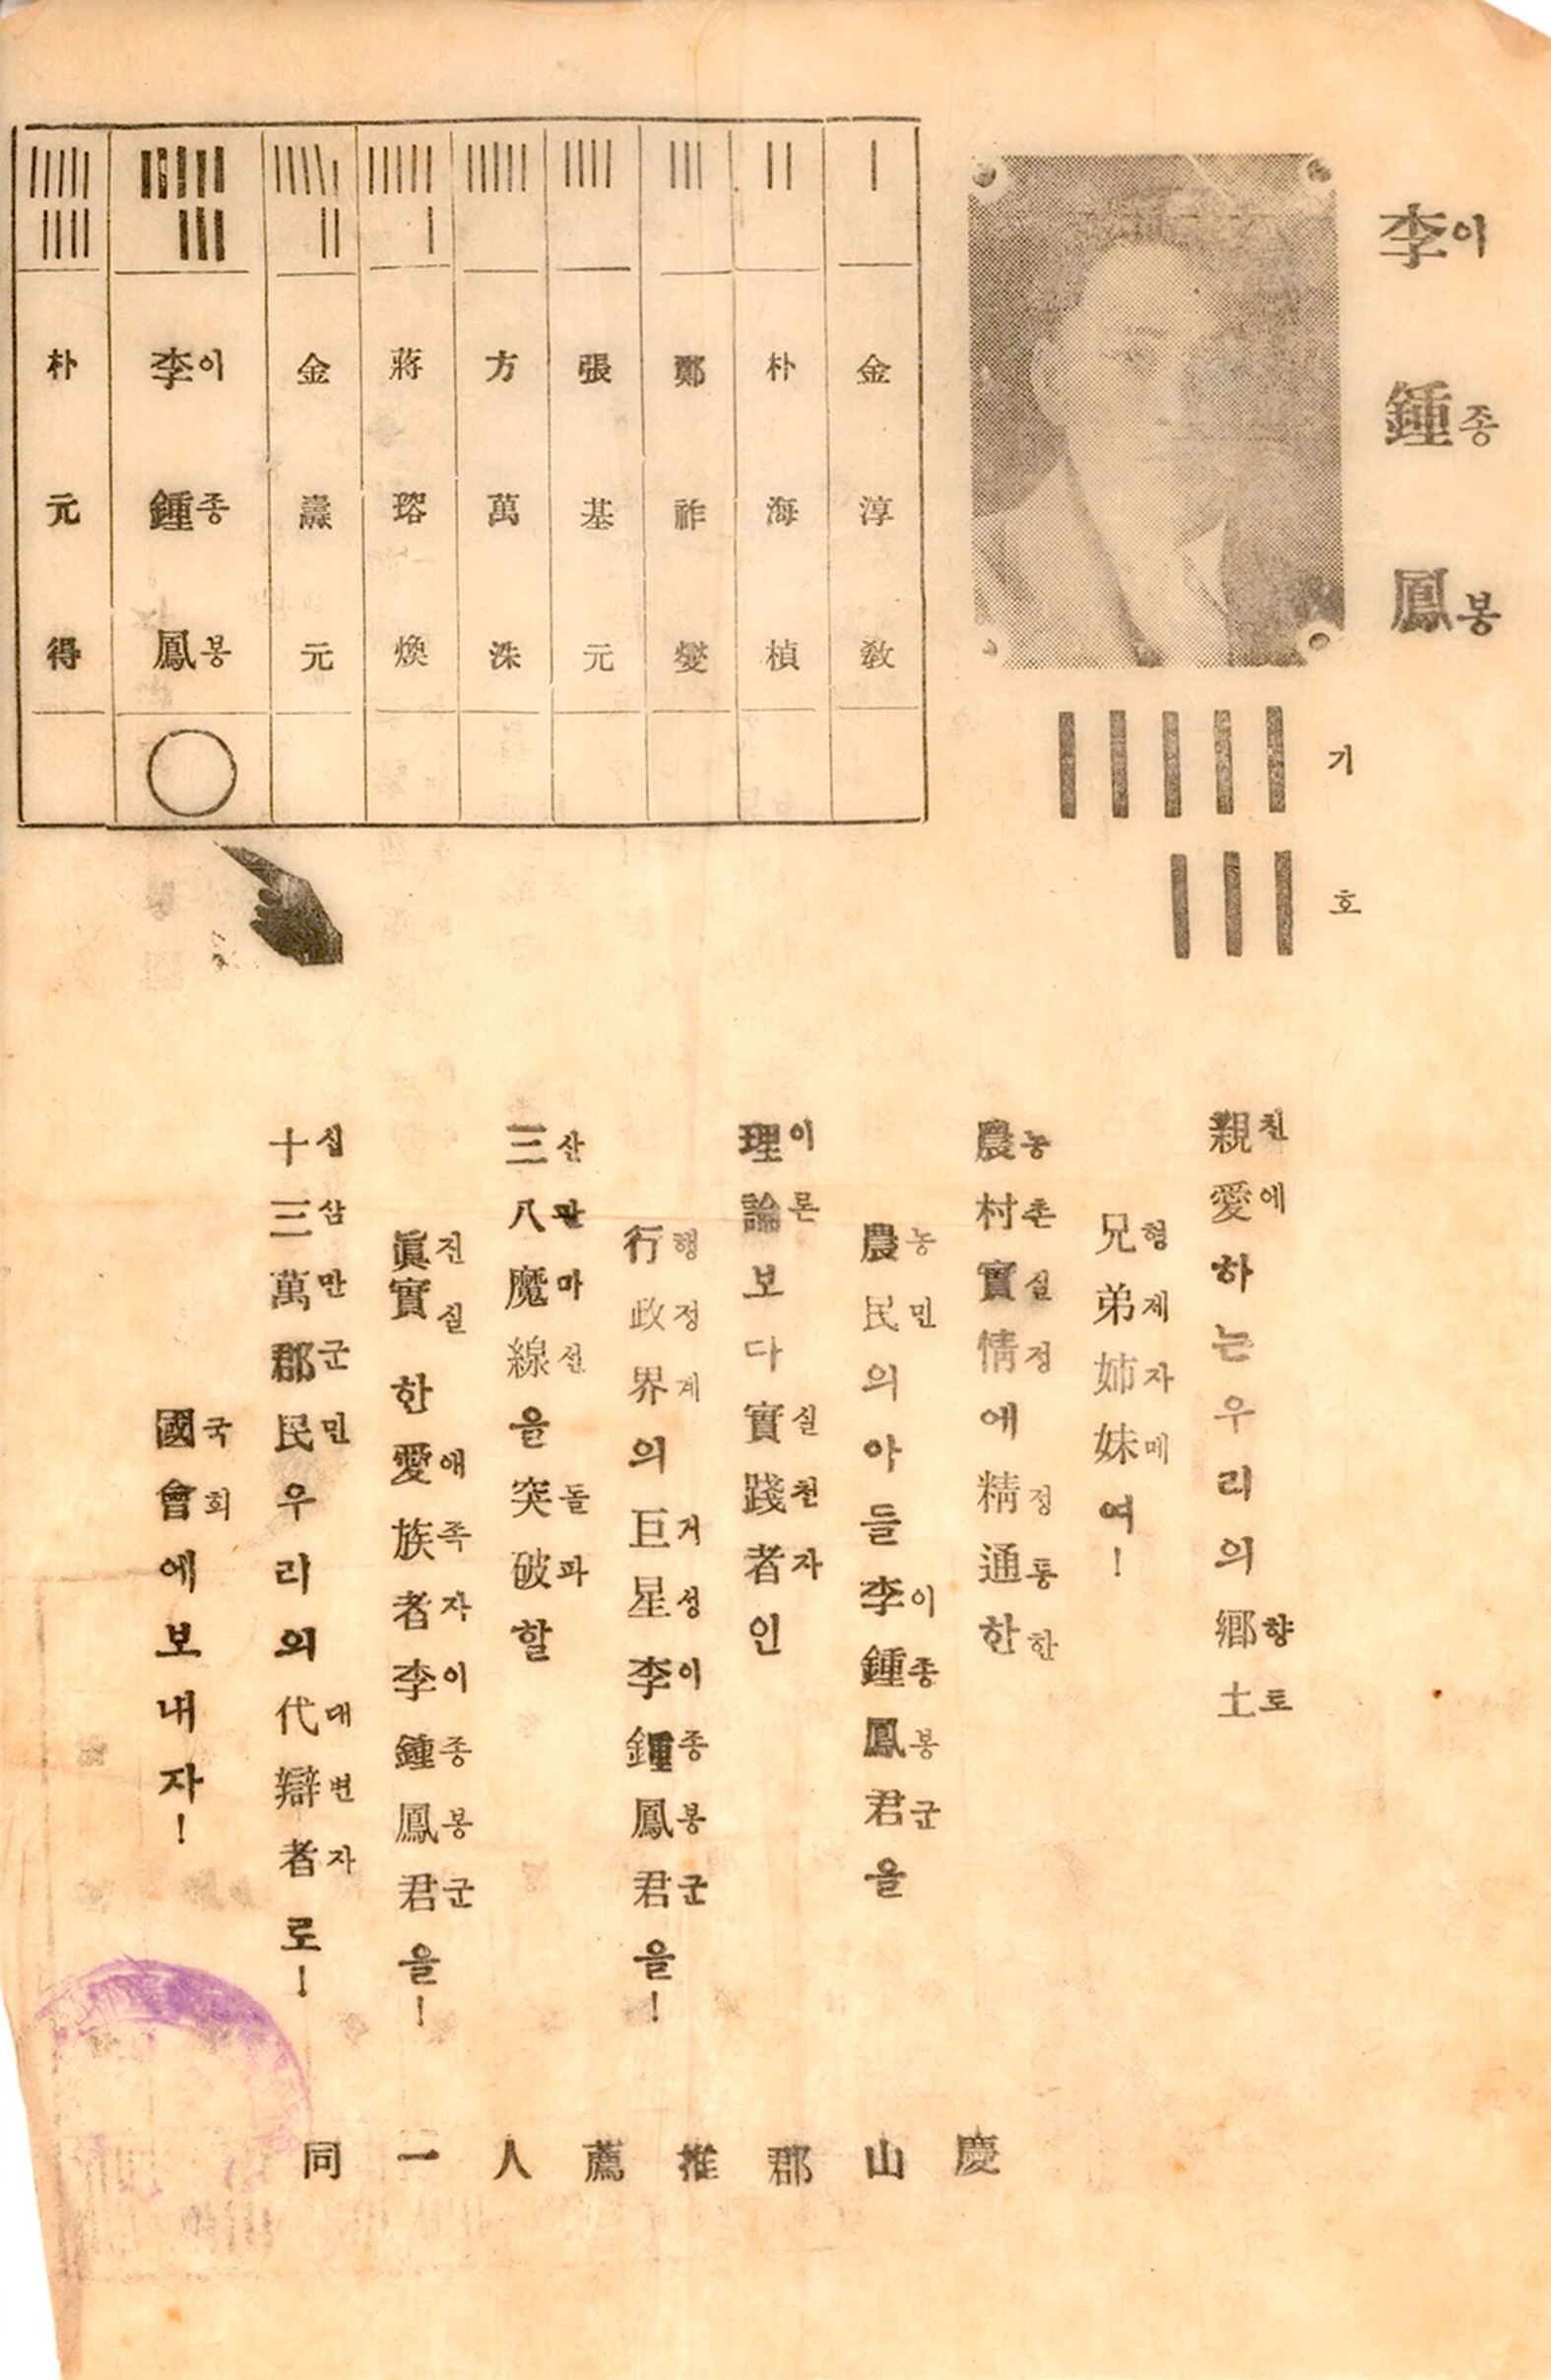 李鍾鳳
이종봉
기호
金淳敎
朴海楨
鄭祚燮
張基元
方萬洙
蔣瑢煥
金燾元
李鍾鳳
이종봉
朴元得
親愛하는우리의鄕土
친에향토
兄弟姉妹여!
형제자메
農村實情에精通한
농촌실정정통한
農民의아들李鍾鳳君을
농민이종봉군
理論보다實踐者인
이론실천자
行政界의巨星李鍾鳳君을!
행정계거성이종봉군
三八魔線을突破할
산팔마선돌파
眞實한愛族者李鍾鳳君을!
진실애족자이종봉군
十三萬郡民우리의代辯者로!
십삼만군민대변자
國會에보내자!
국회
慶山郡推薦人一同